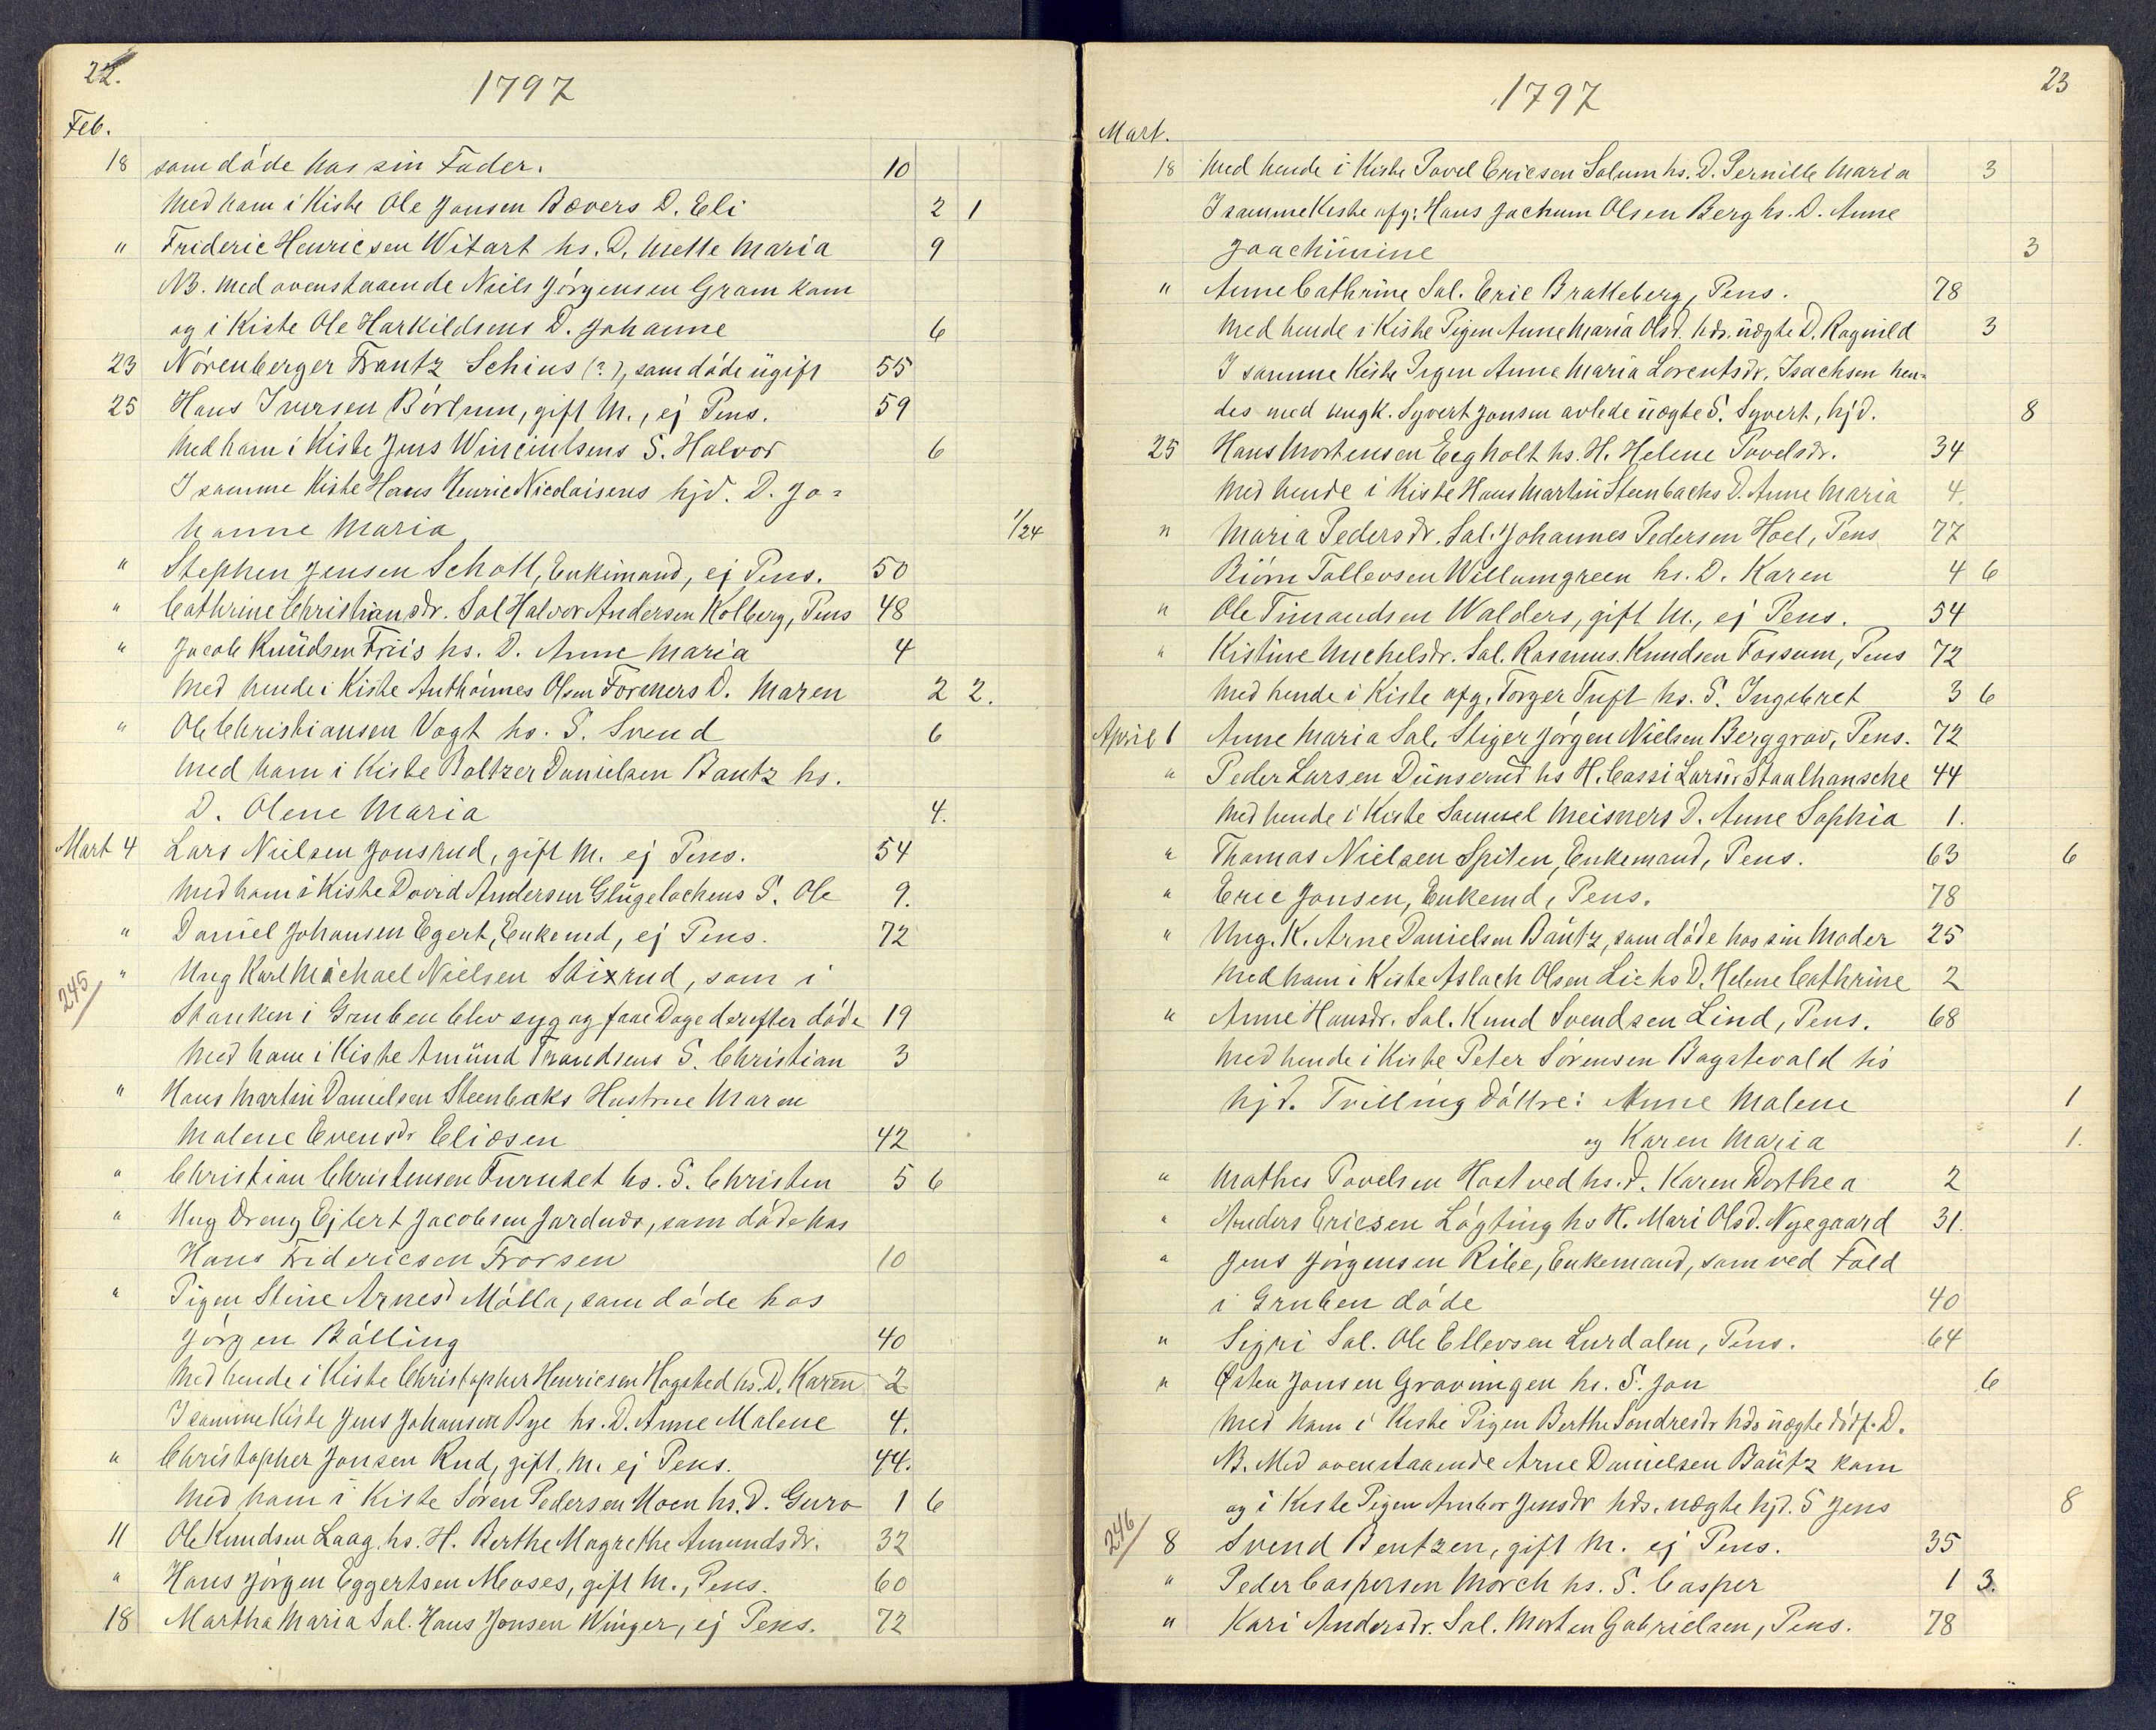 22.
1797
Feb.
18 som døde hos sin Fader. 10
Med ham i Kiste Ole Jonsen Bævers D. Eli 2 1
" Frideric Henricsen Witart hs. D. Mette Maria 9
NB. med ovenstaaende Niels Jörgensen Gram kom
og i Kiste Ole Harkildsens D. Johanne 6
23 Nörenberger Frantz Schius (?), som døde ügift 55
25 Hans Iversen Börtnm, gift M., ej Pens. 59
Med ham i Kiste Jens Wincintsens S. Halvor 6
I samme Kiste Hans Henric Nicolaisens hjd. D. Jo=
hanne Maria 1/24
" Stephen Jensen Schott, Enkimand, ej Pens. 50
" Cathrine Christiansdr. Sal Halvor Andersen Kolberg, Pens 48
" Jacob Knüdsen Friis hs. D. Anne Maria 4
Med hende i Kiste Anthönnes Olsen Formers D. Maren 2 2.
" Ole Christiansen Vogt hs. S. Svend 6
Med ham i Kiste Boltzer Danielsen Bautz hs.
D. Olene Maria 4.
Mart 4 Lars Nielsen Jonsrud, gift M. ej Pens. 54
Med ham i Kiste David Andersen Glügelochens S. Ole 9.
" Daniel Johansen Egert, Enkemd, ej Pens. 72
245/ " Ung Karl Michael Nielsen Stixrud, som i
Stanken i Gruben blev syg og faae Dage derefter døde 19
Med ham i Kiste Amünd Trondsens S. Christian 3
" Hans Martin Danielsen Steenbaks Hustrue Maren
Malene Evensdr Eliasen 42
" Christian Christensen Furuset hs. S. Christen 5 6
" Ung Dreng Ejlert Jacobsen Jordnds, som døde hos
Hans Fridericsen Frorsen 10
" Pigen Stine Arnesd Mölla, som døde hos
Jörgen Bölling 40
Med hende i Kiste Christopher Henricsen Hogsted hs. D. Karen 2
I samme Kiste Jens Johansen Rye hs. D. Anne Malene 4.
" Christopher Jonsen Rud, gift, M. ej Pens. 44.
Med ham i Kiste Sören Pedersen Moen hs. D. Guro 1 6
11 Ole Knudsen Laag. hs. H. Berthe Magrethe Amundsdr. 32
" Hans Jörgen Eggertsen Moses, gift M., Pens. 60
18 Martha Maria Sal. Hans Jonsen Winger, ej Pens. 72
23
1797
Mart.
18 Med hende i Kiste Povel Ericsen Solum hs. D. Pernille Maria 3
I samme Kiste afg: Hans Jochum Olsen Berg hs. D. Anne
Joachimine 3
" Anne Cathrine Sal. Eric Brakkeberg, Pens. 78
Med hende i Kiste Pigen Anne Maria Olsd. hds. üægte D. Ragnild 3
I samme Kiste Pigen Anne Maria Lorentsdr. Isachsen hen=
des med ungk. Syvert Jonsen avlede üægte S. Syvert, hjd. 8
25 Hans Mortensen Eegholt hs. H. Helene Povelsdr. 34
Med hende i Kiste Hans Martin Steenbachs D. Anne Maria 4.
" Maria Pedersdr. Sal. Johannes Pedersen Hoel, Pens 77
Biörn Tollevsen Willumgreen hs. D. Karen 4 6
" Ole Timandsen Walders, gift M., ej Pens. 54
" Kistine Michelsdr. Sal. Rasmus Knudsen Fossum, Pens 72
Med hende i Kiste afg. Torger Tuft hs. S. Ingebret 3 6
April 1 Anne Maria Sal. Stiger Jörgen Nielsen Berggrav, Pens. 72
" Peder Larsen Dünserud hs H. Cassi Larsdr. Staalhansche 44
Med hende i Kiste Samuel Meisners D. Anne Sophia 1.
" Thomas Nielsen Spiten, Enkemand, Pens. 63 6
" Eric Jonsen, Enkemd, Pens. 78
" Ung. K. Arne Danielsen Baütz, som døde hos sin Moder 25
Med ham i Kiste Aslach Olsen Lie hs D. Helene Cathrine 2
" Anne Hansdr. Sal. Knud Svendsen Lind, Pens. 68
Med hende i Kiste Peter Sörensen Bagstevold hs
hjd. Tvilling Döttre: Anne Malene 1
og Karen Maria 1.
" Mathes Povelsen Hostved hs. D. Karen Dorthea 2
" Anders Ericsen Lögting hs H. Mari Olsd. Nyegaard 31.
" Jens Jörgensen Ribe, Enkemand, som ved Fald
i Gruben døde 40
" Sigri Sal. Ole Ellevsen Lurdalen, Pens. 64
" Östen Jonsen Gravningen hs. S. Jon 6
Med ham i Kiste Pigen Berthe Sondresdr hds üægte dödf. D.
NB. Med ovenstaaende Arne Danielsen Baütz kom
og i Kiste Pigen Anbor Jensdr hds. uægte hjd. S Jens 8
246/ 8 Svend Bentzen, gift M. ej Pens. 35
" Peder Caspersen Morch hs. S. Casper 1 3.
" Kari Andersdr. Sal. Morten Gabrielsen, Pens. 78